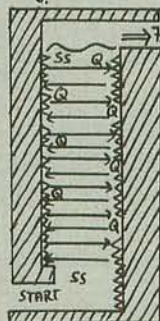 SS Q
Q
Q
Q
Q
Q
Q
SS
START